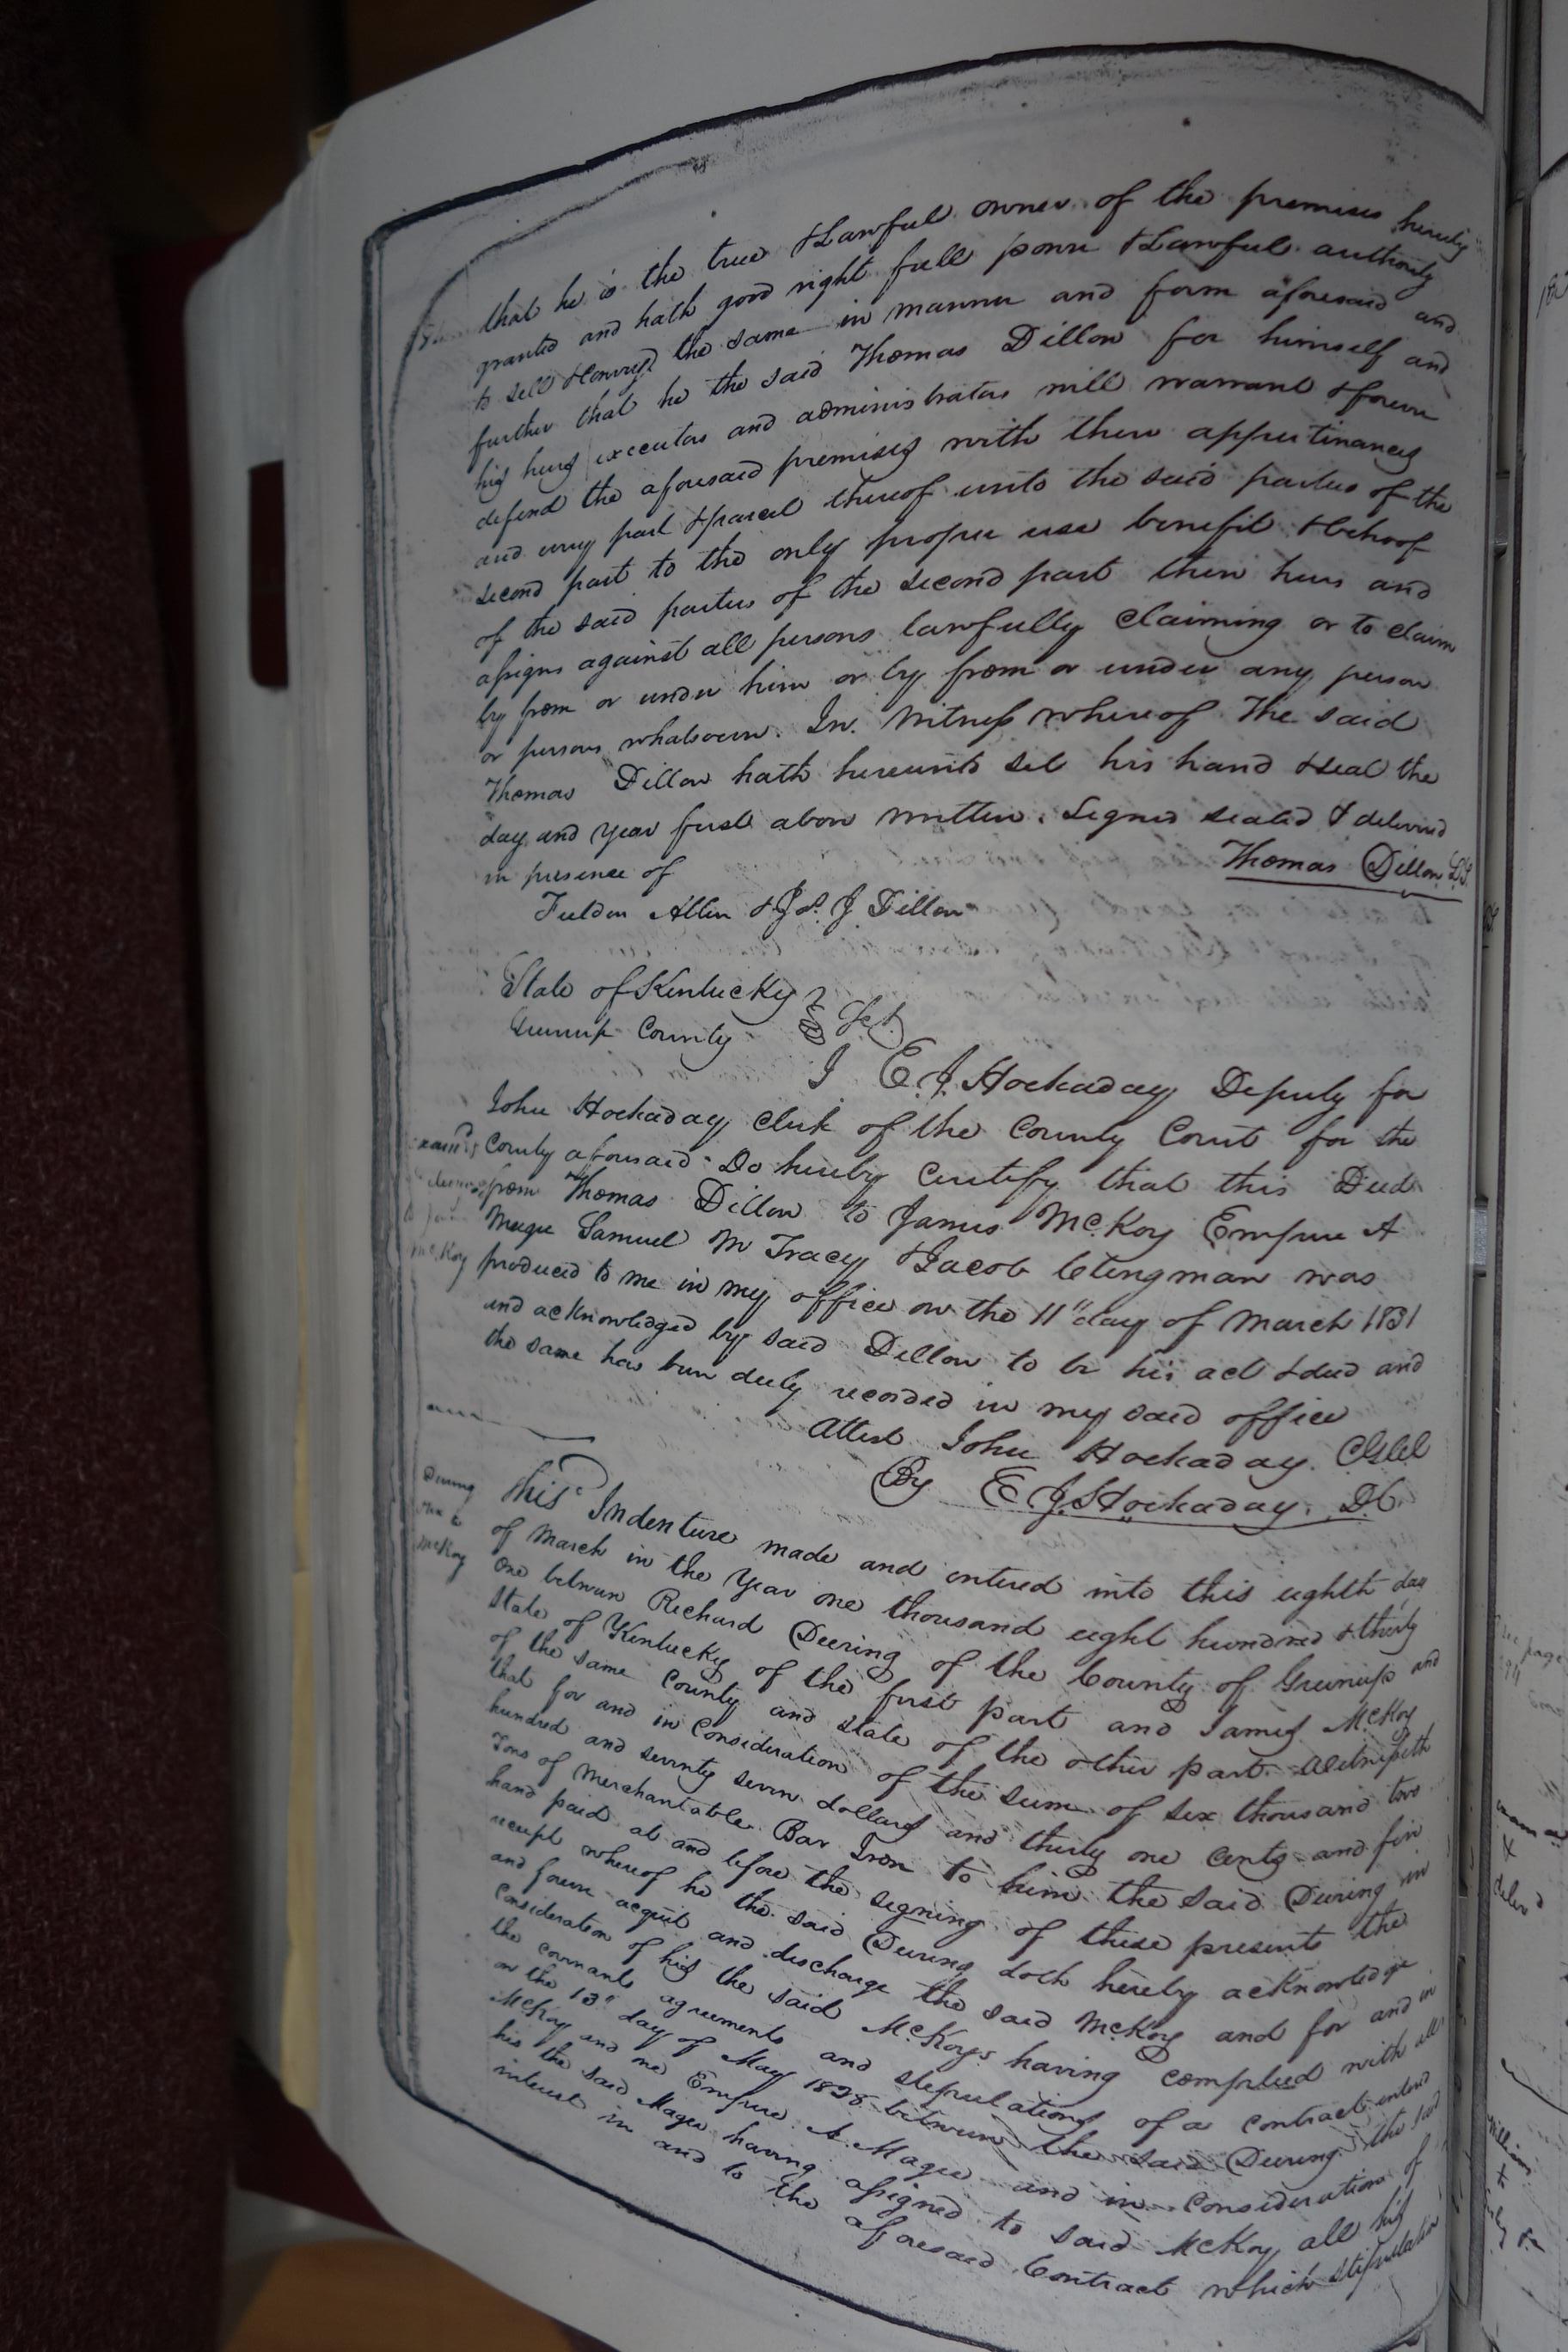 that he is the true & Lawful owner of the premises hereby
granted and hath good right full power & Lawful authority
to sell & Convey the same in manner and form aforesaid and
further that he the said Thomas Dillon for himself and
his heirs executors and administrators will warrant & forever
defend the aforesaid premises with their appurtinances
and every part & parcel thereof unto the said parties of the
second part to the only proper use benefit & behoof
of the said parties of the second part their heirs and
assigns against all persons lawfully claiming or to claim
by from or under him or by from or under any person
or persons whatsoever. In Witness whereof The said
Thomas Dillon hath hereunto set his hand & seal the
day and year first above written. Signed sealed & delivered
in presence of Thomas Dillon L.S.
Fielden Allen & J. J Dillon
State of Kentucky
Greenup County Sct.
I E. J. Hockaday Deputy for
John Hockaday Clerk of the County Court for the
County aforesaid Do hereby Certify that this Deed
from Thomas Dillon to James McKoy Empire A
Magee Samuel M Tracy & Jacob Clingman was
produced to me in my office on the 11" day of March 1831
and acknowledged by said Dillon to be his act & deed and
the same has been duly recorded in my said office
Attest John Hockaday
By E J. Hockaday. D.C.
Deering
McKoy
This Indenture made and entered into this eighth day
of March in the Year one thousand eight hundred & thirty
one between Richard Deering of the County of Greenup and
State of Kentucky of the first part and James McKoy
of the same County and state of the other part Witnesseth
that for and in Consideration of the sum of six thousand two
hundred and seventy seven dollars and thirty one cents and five
Tons of Merchantable Bar Iron to him the said Deering in
hand paid at and before the signing of these presents the
receipt whereof he the said Deering doth hereby acknowledge
and forever acquit and discharge the said McKoy and for and in
Consideration of his the said McKoys having complied with all
the covenants agreements and stipulations of a contract entered
on the 13" day of May 1828 between the said Deering the said
McKoy and one Empire A. Magee and in Consideration of
his the said Magee having assigned to said McKoy all his
interest in and to the aforesaid Contract which stipulation